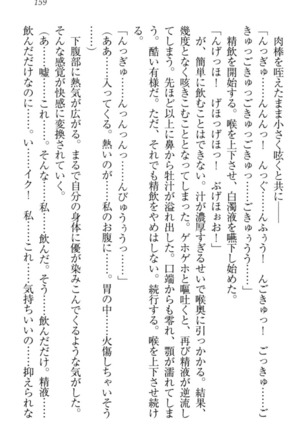 159
肉棒を咥えたまま小さく呟くと共に――
「んっぎゅ……んっんっ！　んっぐ……んふぅう！　んごきゅっ！　ごっきゅっ……ご
きゅごきゅごきゅっ……ごきゅうううっ♥」
精飲を開始する。喉を上下させ、白濁液を嚥下し始めた。
「んげっほ！　げほっげほっ！　ぶげほぉお！」
が、簡単に飲むことはできない。汁が濃厚すぎるせいで喉奥に引っかかる。結果、
幾度となく咳きこむこととなってしまった。ゲホゲホと嘔吐くと、再び精液が逆流し
てしまう。先ほど以上に鼻から牡汁が溢れ出した。口端からも零れ、顎が濡れてしま
う。酷い有様だ。ただ、それでも精飲をやめはしない。続行する。喉を上下させ続け
「んっぎゅ……んっんっんっ……んぴゅううっ♥」
（ああ……入ってくる。熱いのが……私のお腹に……。胃の中……火傷しちゃいそう
下腹部に熱気が広がる。まるで自分の身体に優が染みこんでくるような気がした。
そんな感覚が快感に変換されていく。
（あ……嘘……これ……。そんな……私……飲んだ。そう……飲んだだけ。精液……
飲んだだけなのに……。い……イク！　私……これ……気持ちいいの……抑えられな